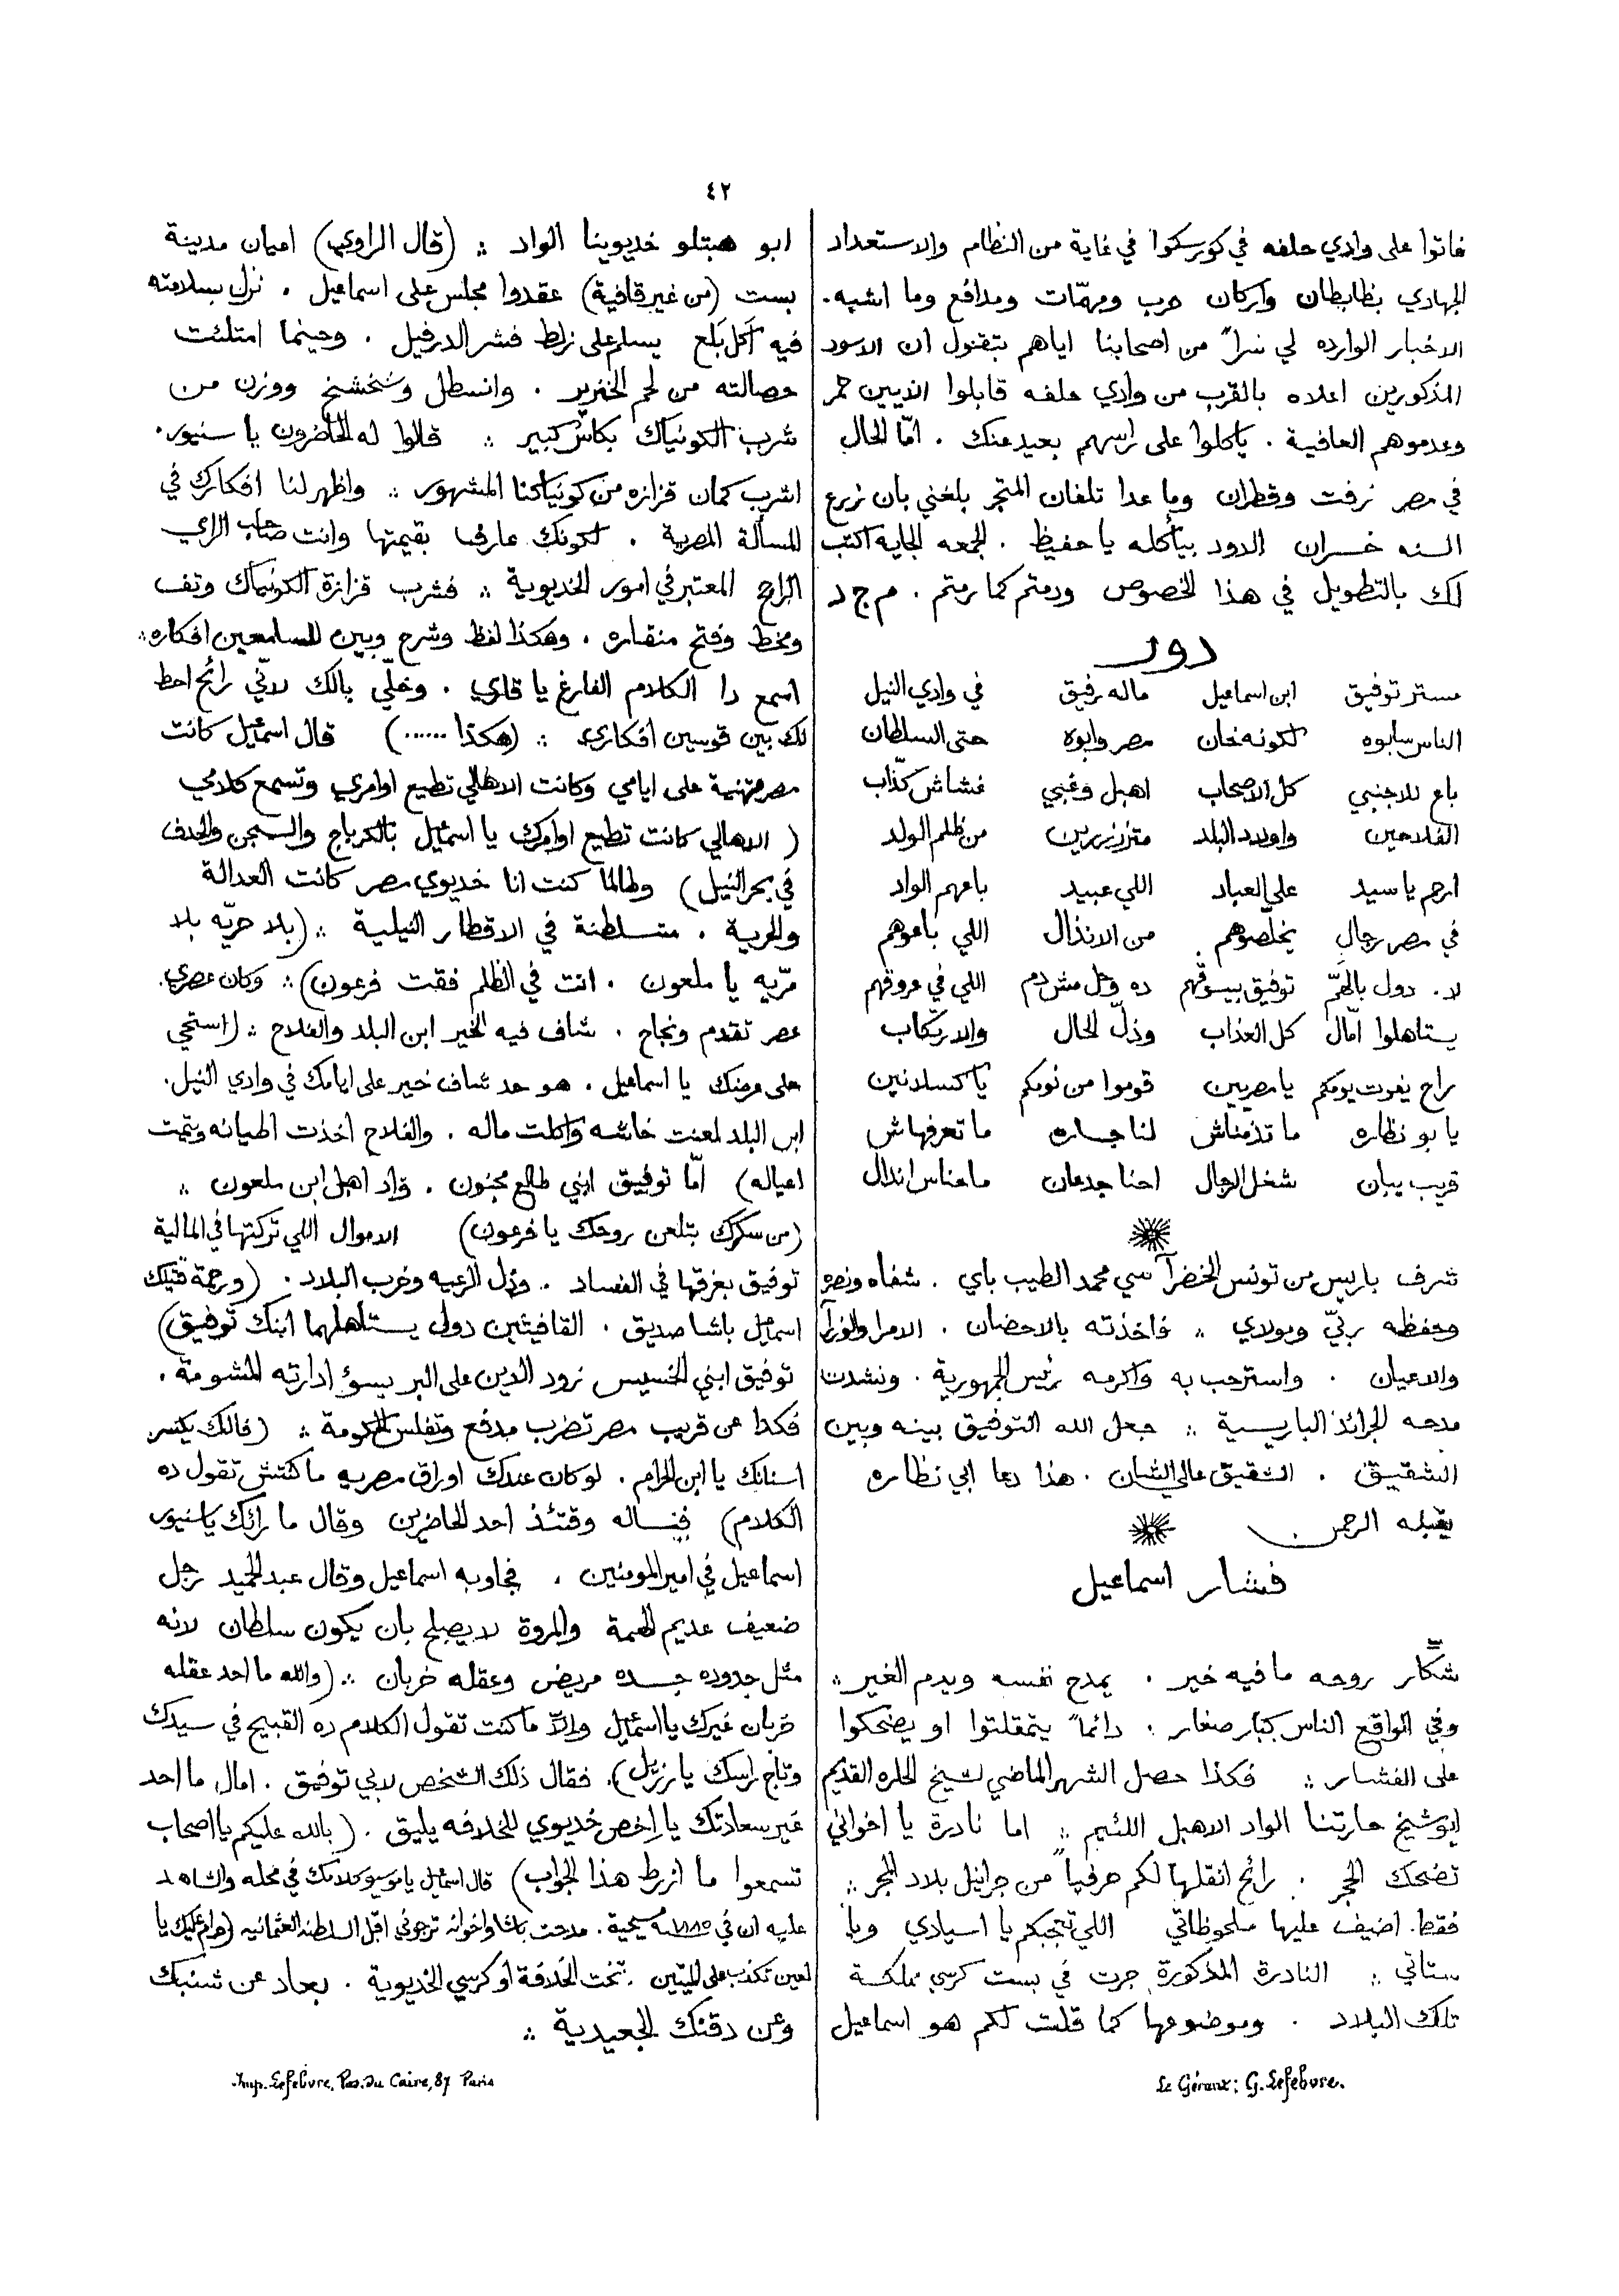 ٤٢
فاتوا على وادي حلفه في كورسكوا في غاية من النظام والاستعداد
الجهادي بظابطان واركان حرب ومهمّات ومدافع وما اشبه .
الاخبار الوارده لي سراً من اصحابنا اياهم بتقول ان الاسود
المذكورين اعلاه بالقرب من وادي حلفه قابلوا الديبين حمر
وعدموهم العافية . ياكلوا على راسهم بعيد عنك . امّا الحال
في مصر زفت وقطران وما عدا تلفان المتجر بلغني بان زرع
السنه خسران الدود بيأكله يا حفيظ . الجمعه الجايه اكتب
لك بالتطويل في هذا الخصوص ودمتم كما رمتم . م ج د
دور
مستر توفيق ابن اسماعيل ماله رفيق في وادي النيل
الناس سابوه لكونه خان مصر وابوه حتى السلطان
باع للاجنبي كل الاصحاب اهبل وغبي فشاش كذّاب
الفلاحين واولاد البلد متزنزرين من ظلم الولد
ارحم يا سيد على العباد اللي عبيد باعهم الواد
في مصر رجال يخلّصوهم من الانذال اللي باعوهم
لا . دول بالهَمّ توفيق بيسوقهم ده وحل مش دم اللي في عروقهم
يستاهلوا امّال كل العذاب وذلّ الحال والارتكاب
راح يفوت يومكم يا مصريين قوموا من نومكم يا كسلانين
يا بو نظاره ما تذمناش لنا جساره ما تعرفهاش
قريب يبان شغل الرجال احنا جدعان ماحناس اندال
شرف باريس من تونس الخضرآ سي محمد الطيب باي . شفاه ونصره
وحفظه ربيّ ومولاي ؞ فاخذته بالاحضان . الامرا والوزرآ
والاعيان . واسترحب به واكرمه رئيس الجمهورية . ونشدت
مدحه الجرائد الباريسية ؞ جعل الله التوفيق بينه وبين
الشقيق . الشقيق عالي الشان . هذا دعا ابي نظاره
يقبله الرحمن .
فشار اسماعيل
شكّار روحه ما فيه خير . يمدح نفسه ويدم الغير ؞
وفي الواقع الناس كبار صغار . دائماً يتمقلتوا او يضحكوا
على الفشار ؞ فكذا حصل الشهر الماضي لشيخ الحاره القديم
ابو شيخ حارتنا الواد الاهبل اللئيم ؞ اما نادرة يا اخواني
تضحك الحجر . رائح انقلها لكم حرفياً من جرانيل بلاد المجر ؞
فقط . اضيف عليها ملحوظاتي اللي تعجبكم يا اسيادي ويا
ستاتي ؞ النادرة المذكورة جرت في بست كرسي مملكة
تلك البلاد . وموضوعها كما قلت لكم هو اسماعيل
Le Gérant: G. Lefebvre.
ابو هبتلو خديوينا الواد ؞ (قال الراوي) اعيان مدينة
بست (من غير قافية) عقدوا مجلس على اسماعيل . نزل بسلامته
فيه أكل بَلع يسلم على زلط فشر الدرفيل . وحينما امتلئت
حصالته من لحم الخنزير . وانسطل وشخشخ ووزن من
شرب الكونياك بكاس كبير ؞ قالوا له الحاضرون يا سنيور .
اشرب كمان قزازه من كونياكنا المشهور ؞ واظهر لنا افكارك في
المسألة المصرية . لكونك عارف بقيمتها وانت صاحب الراي
الراجح المعتبر في امور الخديوية ؞ فشرب قزازة الكونياك وتف
ومخط وفتح منقاره . وهكذا لفظ وشرح وبين للسامعين افكاره ؞
اسمع دا الكلام الفارغ يا قاري . وخلّي بالك لانّي رائح احط
لك بين قوسين افكاري ؞ (هكذا ......) قال اسماعيل كانت
مصر متهنية على ايامي وكانت الاهالي تطيع اوامري وتسمع كلامي
(الاهالي كانت تطيع اوامرك يا اسماعيل بالكرباج والسجن والحدف
في بحر النيل) ولهالما كنت انا خديوي مصر كانت العدالة
والحرية . متسلطنة في الاقطار النيلية ؞ (بلا حريّه بلا
مرّيه يا ملعون . انت في الظلم فقت فرعون) ؞ وكان عصري .
عصر تقدم ونجاح . شاف فيه الخير ابن البلد والفلاح ؞ (استحي
على عرضك يا اسماعيل . هو حد شاف خير على ايامك في وادي النيل .
ابن البلد لعنت خاشه واكلت ماله . والفلاح اخذت اطيانه ويتمت
اعياله) امّا توفيق ابني طالع مجنون . واد اهبل ابن ملعون ؞
(من سكرك بتلعن روحك يا فرعون) الاموال اللي تركتها في المالية
توفيق بغرقها في الفساد . وذل الرعيه وخرب البلاد . (ورحمة قتيلك
اسماعيل باشا صديق . القافيتين دولي يستاهلهما ابنك توفيق)
توفيق ابني الخسيس زود الدين على البر بسوء ادارته المشومة .
فكدا عن قريب مصر تضرب مدفع وتفلس الحكومة ؞ (فالك يكسر
اسنانك يا ابن الحرام . لو كان عندك اوراق مصريه ما كنتش تقول ده
الكلام) فسأله وقتئذ احد الحاضرين وقال ما رائك يا سنيور
اسماعيل في امير المومنين . فجاوبه اسماعيل وقال عبد الحميد رجل
ضعيف عديم الهمة والمروة لا يصلح بان يكون سلطان لانه
مثل جدوده جسده مريض وعقله خربان ؞ (والله ما احد عقله
خربان غيرك يا اسماعيل والاّ ما كنت تقول الكلام ده القبيح في سيدك
وتاج راسك يا رزيل) . فقال ذلك الشخص لابي توفيق . امال ما احد
غير سعادتك يا اخص خديوي للخلافه يليق . (بالله عليكم يا اصحاب
تسمعوا ما ازرط هذا الجواب) قال اسماعيل يا موسيو كلامك في محله والشاهد
عليه ان في سنة مسيحية . مدحت باشا واخوانه ترجوني اقبل السلطنه العثمانيه (حرام عليك يا
لعين تكذب على الميّتين . تخت الخلافة او كرسي الخديوية . بعاد عن شنبك
وعن دقنك الجعيدية ؞
Imp. Lefebvre, Pas. du Caire, 87 Paris